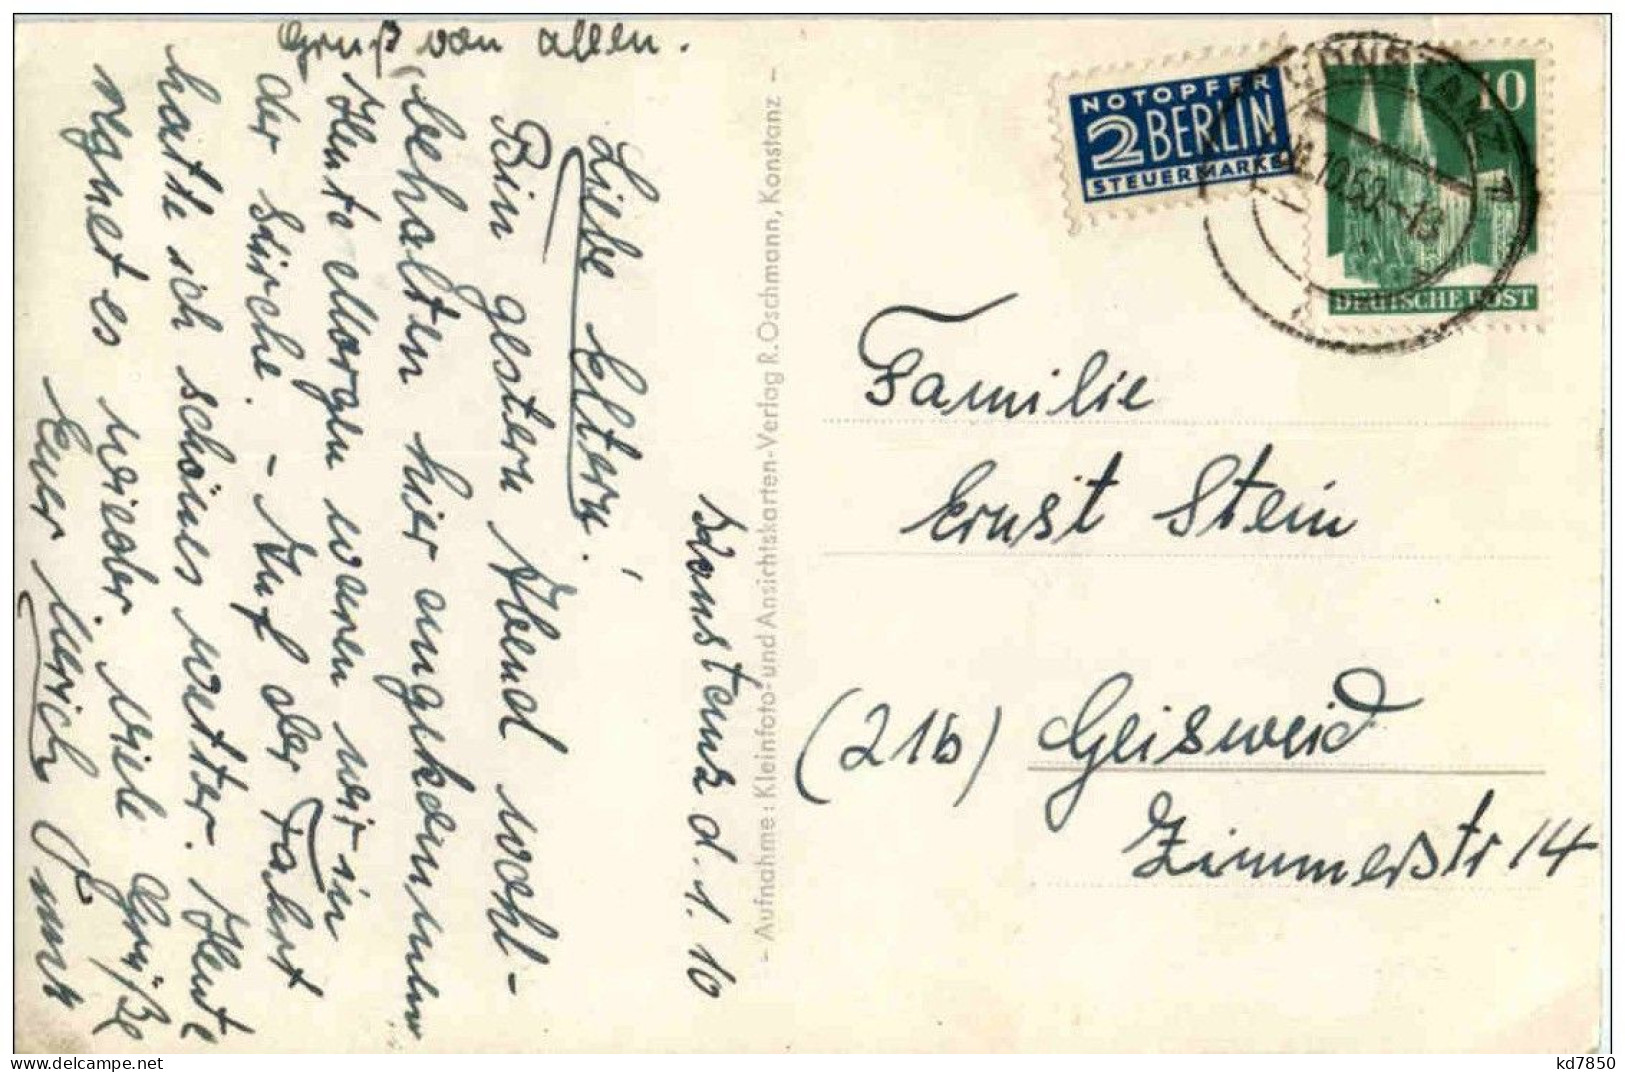 Gruß von allen.
Konstanz d. 1. 10
Liebe Eltern!
Bin gestern Abend wohl-
behalten hier angekommen
Heute Morgen waren wir in
der Kirche. - Auf der Fahrt
hatte ich schönes Wetter. Heute
regnet es wieder. Viele Grüße
Euer
- Aufnahme: Kleinfoto- und Ansichtskarten-Verlag R. Oschmann, Konstanz -
NOTOPFER
2 BERLIN
STEUERMARKE
KONSTANZ
10.50.-13
10
DEUTSCHE POST
Familie
Ernst Stein
(21b) Geisweid
Zimmerstr 14
kd7850